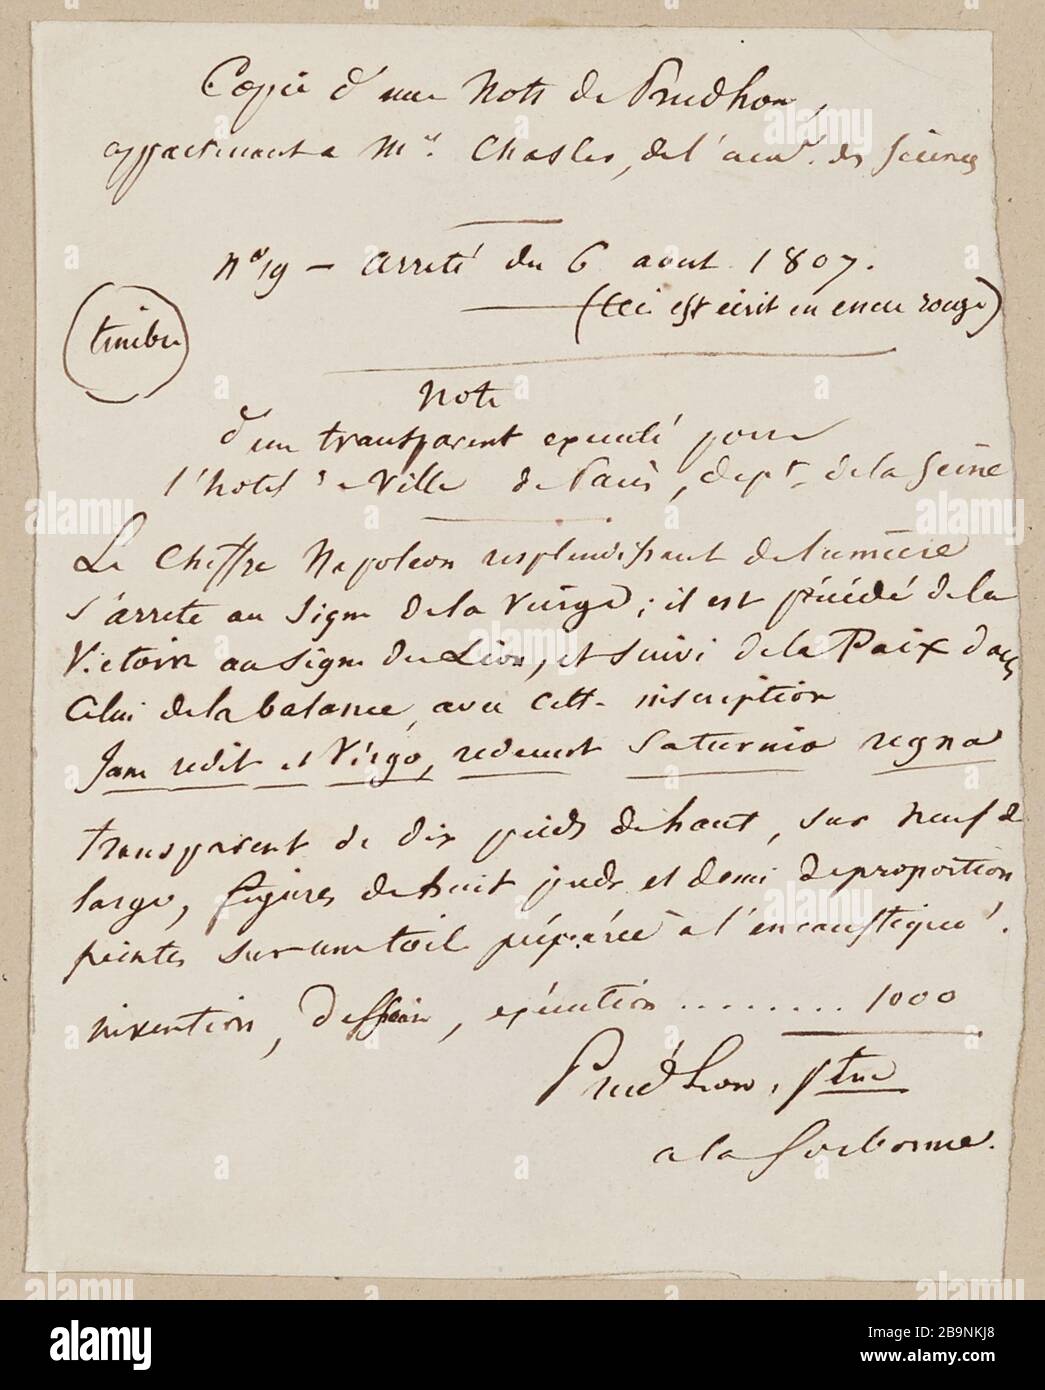 Copie d'une Note de Prudhon,
appartenant a Mr. Chasles, de l'acad. des Sciences
No 19 — arreté du 6 aout 1807.
(Ceci est écrit en encre rouge)
timbre
Note
d'un transparent executé pour
l'hotel de Ville de Paris, dept. de la Seine
Le Chiffre Napoleon resplendissant de lumiere
s'arrete au signe de la Vierge; il est précédé de la
Victoire au signe du Lion, et suivi de la Paix dans
Celui de la balance, avec cette inscription
Jam redit et Virgo, redeunt Saturnia regna
transparent de dix pieds de haut, sur neuf de
large, figures de huit pieds et demi de proportion
peintes sur une toile préparée à l'encaustique.
invention, dessin, exécution ......... 1000
Prud'hon, ptre
a la Sorbonne.
alamy
Image ID: 2B9NKJ8
www.alamy.com